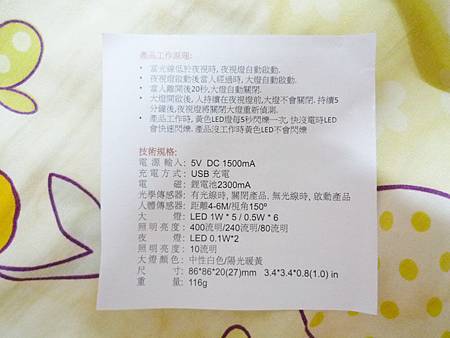 產品工作原理:
• 當光線低於夜視時, 夜視燈自動啟動.
• 夜視燈啟動後當人經過時, 大燈自動啟動.
• 當人離開後20秒,大燈自動關閉.
• 大燈開啟後, 人持續在夜視燈前,大燈不會關閉. 持續5
分鐘後,夜視燈將關閉大燈重新偵測.
• 產品工作時, 黃色LED燈每5秒閃爍一次, 快沒電時LED
會快速閃爍. 產品沒工作時黃色LED不會閃爍
技術規格:
電 源 輸入: 5V DC 1500mA
充 電 方 式: USB 充電
電 磁: 鋰電池2300mA
光學傳感器: 有光線時, 關閉產品. 無光線時, 啟動產品
人體傳感器: 距離4-6M/視角150º
大 燈: LED 1W * 5 / 0.5W * 6
照 明 亮 度: 400流明/240流明/80流明
夜 燈: LED 0.1W*2
照 明 亮 度: 10流明
大 燈 顏 色: 中性白色/陽光暖黃
尺 寸: 86*86*20(27)mm 3.4*3.4*0.8(1.0) in
重 量: 116g